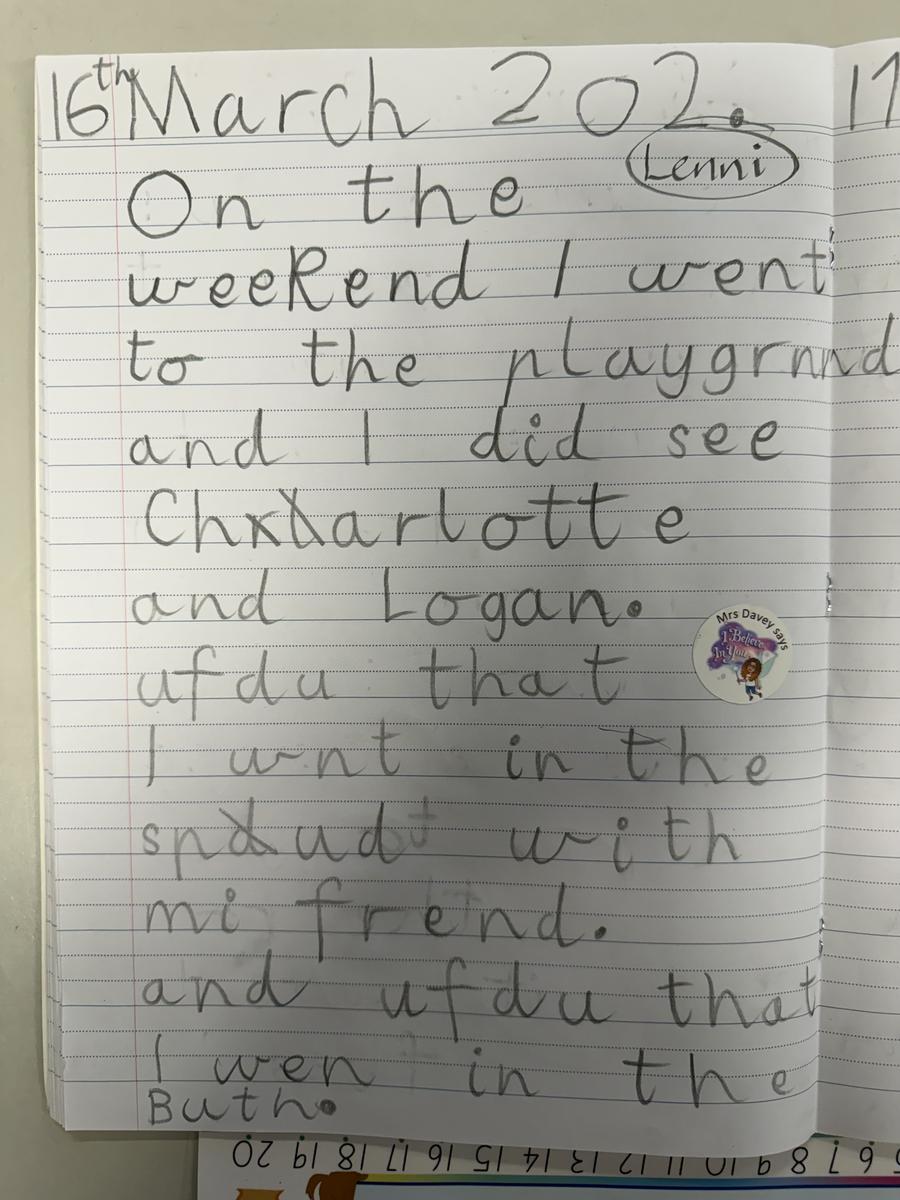 16th March 202.
17
Lenni
On the
weekend I went
to the playgrnnd
and I did see
Chxxarlotte
and Logan.
Mrs Davey says
I Believe
In You
ufdu that
I wnt in the
spxudt with
mi frend.
and ufdu that
I wen in the
Buth.
20 19 18 17 16 15 14 13 12 11 10 9 8 7 6 5